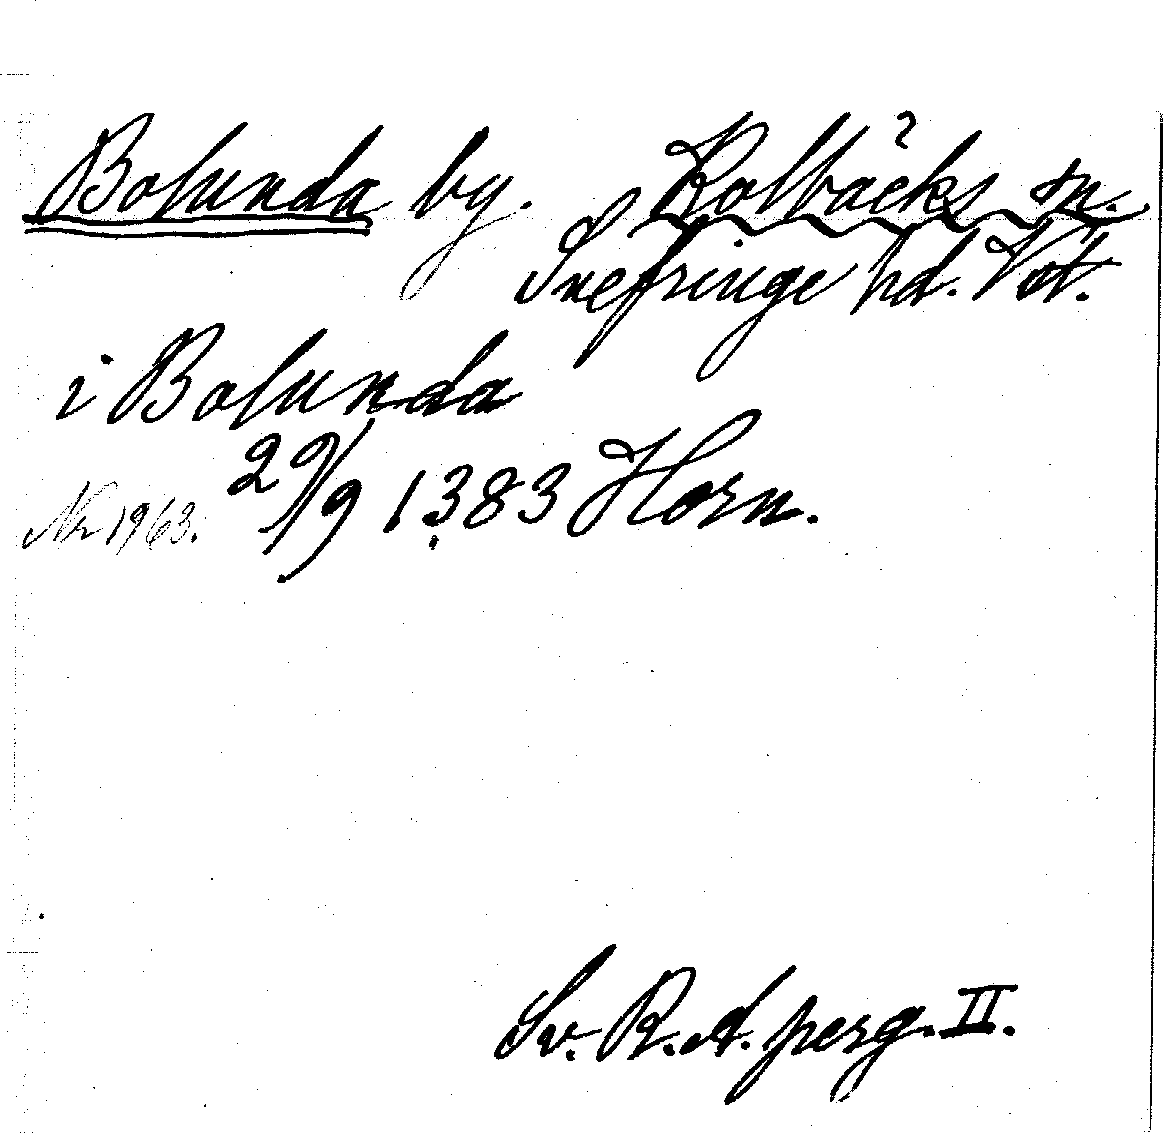 Bolunda by. Kolbäcks sn. ?
Snefringe hd. Vst.
i Bolunda
29/9 1383 Horn.
Nr 1963.
Sv. R. A. perg. II.